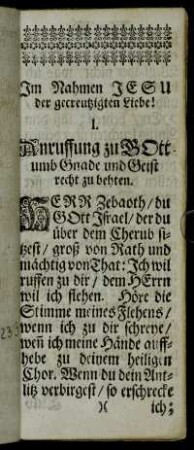 Im Nahmen JESU
der gecreutzigten Liebe!
I.
Anruffung zu GOtt
umb Gnade und Geist
recht zu behten.
HERR Zebaoth/ du
GOtt Israel/ der du
über dem Cherub si-
tzest/ groß von Rath und
mächtig von That: Ich wil
ruffen zu dir/ dem HErrn
wil ich flehen. Höre die
Stimme meines Flehens/
wenn ich zu dir schreye/
weñ ich meine Hände auff-
hebe zu deinem heiligen
Chor. Wenn du dein Ant-
litz verbirgest/ so erschrecke
)( ich;